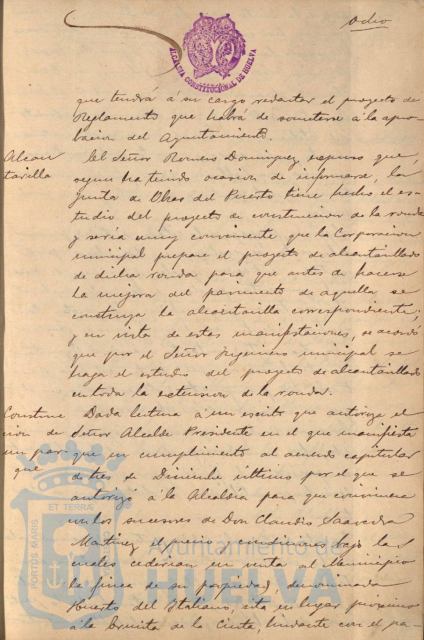 ocho
ALCALDIA CONSTITUCIONAL DE HUELVA
que tendrá á su cargo redactar el proyecto de
Reglamento que habrá de someterse á la apro-
bacion del Ayuntamiento.
Alcan
tarilla
El Señor Romero Dominguez expuso que,
segun ha tenido ocasion de informarse, la
Junta de Obras del Puerto tiene hecho el es-
tudio del proyecto de construccion de la ronda
y sería muy conveniente que la Corporacion
municipal prepare el proyecto de alcantarillado
de dicha ronda para que antes de hacerse
la mejora del pavimento de aquella se
construya la alcantarilla correspondiente;
y en vista de estas manifestaciones, se acordó
que por el Señor Ingeniero municipal se
haga el estudio del proyecto de alcantarillado
en toda la extension de la ronda.
Construc
cion de
un par-
que
Dada lectura á un escrito que autoriza el
Señor Alcalde Presidente en el que manifiesta
que en cumplimiento al acuerdo capitular
de tres de Diciembre último por el que se
autorizó á la Alcaldía para que conviniera
con los sucesores de Don Claudio Saavedra
Martinez el precio y condiciones bajo las
cuales cederian en venta al Municipio
la finca de su propiedad, denominada
Huerto del Italiano, sita en lugar próximo
á la Ermita de la Cinta, lindante con el pa-
PORTUS MARIS
ET TERRAE
Ayuntamiento de
HUELVA